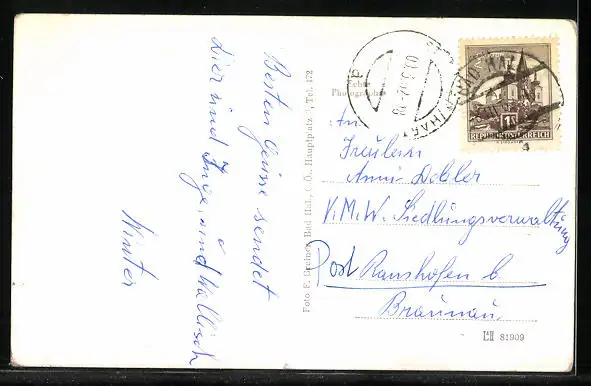 Besten Grüsse sendet
Dier und Inge und Wallisch
Winter
Foto F. Greiner, Bad Hall, O.Ö., Hauptplatz, Tel. 172
Echte
Photographie
BAD HALL
1 S
REPUBLIK ÖSTERREICH
An
Fräulein
Anni Dobler
V.M.W. Siedlungsverwaltung
Post Ranshofen b
Braunau
81909